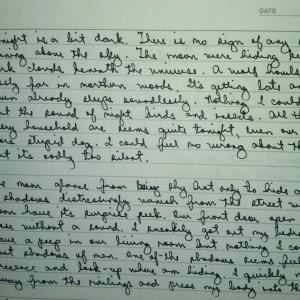 DATE
night is a bit dark. There is no sign of any
above the sky. The moon were hiding
dark clouds beneath the universe. A wolf
far in northern woods. It's getting late
already sleeps soundlessly. Nothing I could
the sound of night birds and insects. All
every household are seems quite tonight, even our
stupid dog. I could feel no wrong about
but it's oddly too silent.
moon glance from being shy but only to hide
shadows distressingly vanish from the street
have its purpose peek. Our front door open
without a sound. I sneakily got out my
have a peep in our living room but nothing I
shadows of man. One of the shadows seems
presence and look-up where am hiding. I quickly
away from the railings and press my body into